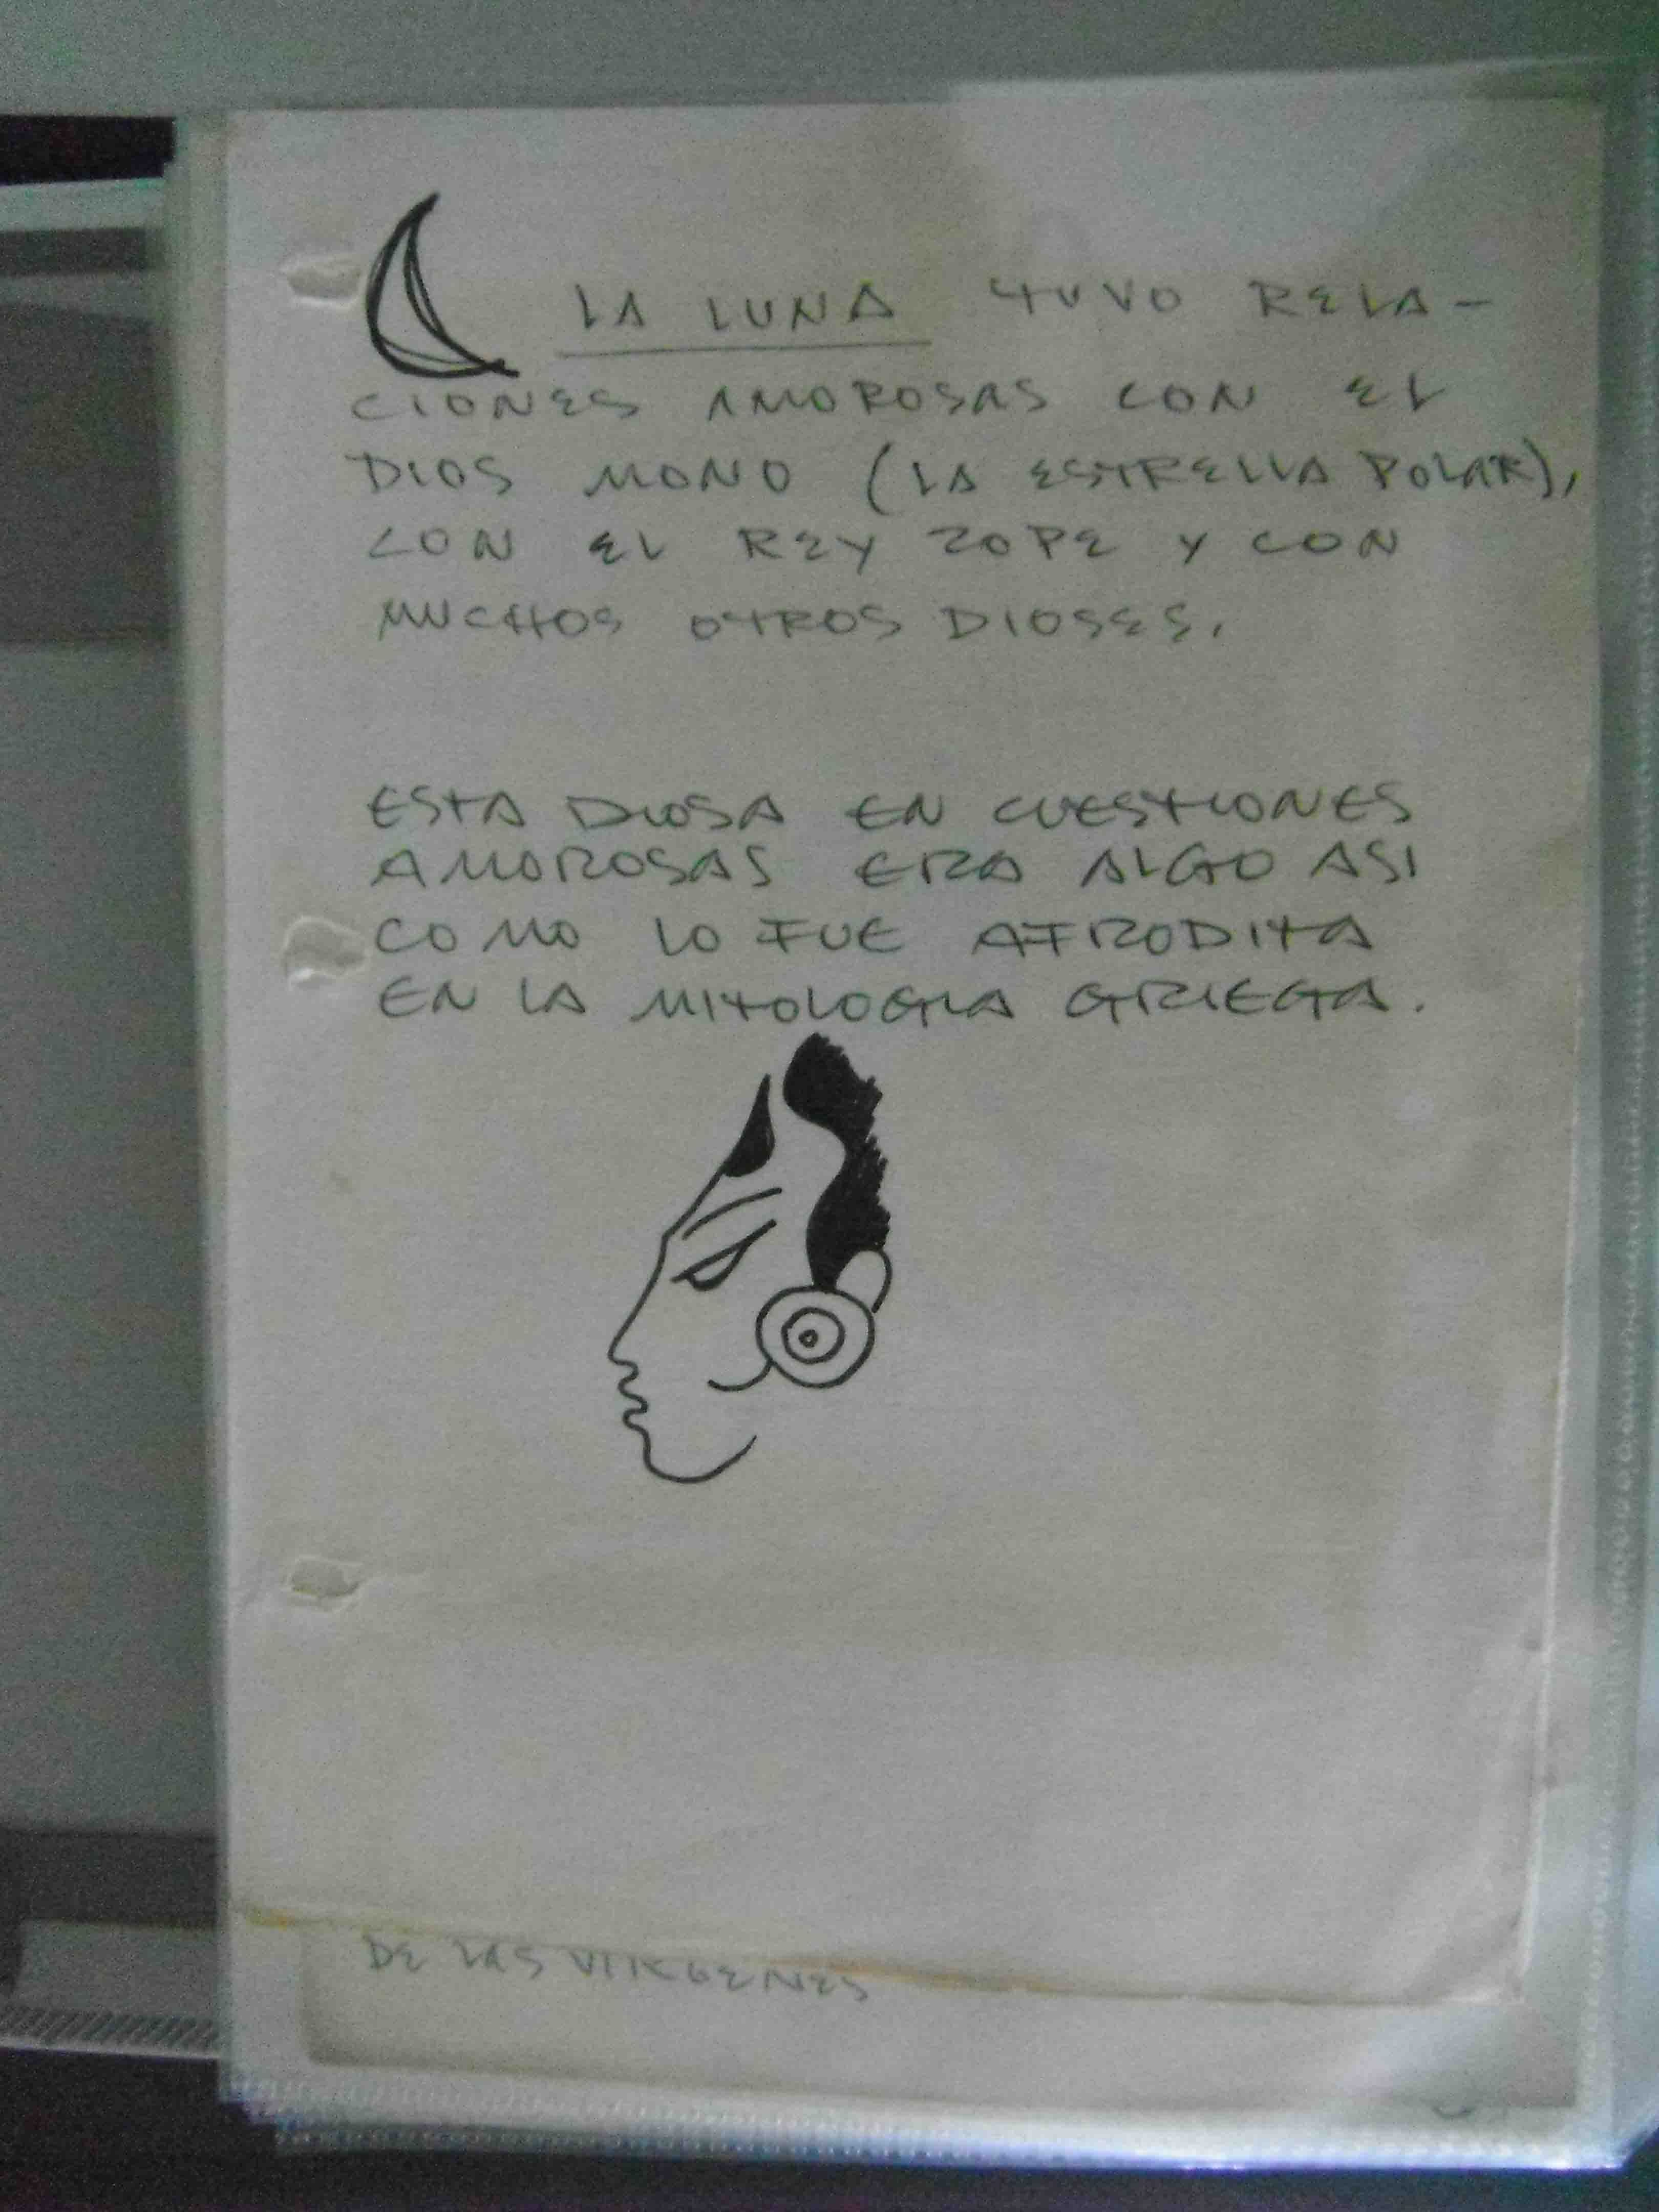 LA LUNA TUVO RELA-
CIONES AMOROSAS CON EL
DIOS MONO (LA ESTRELLA POLAR),
CON EL REY ZOPE Y CON
MUCHOS OTROS DIOSES.
ESTA DIOSA EN CUESTIONES
AMOROSAS ERA ALGO ASI
COMO LO FUE AFRODITA
EN LA MITOLOGIA GRIEGA.
DE LAS VIRGENES